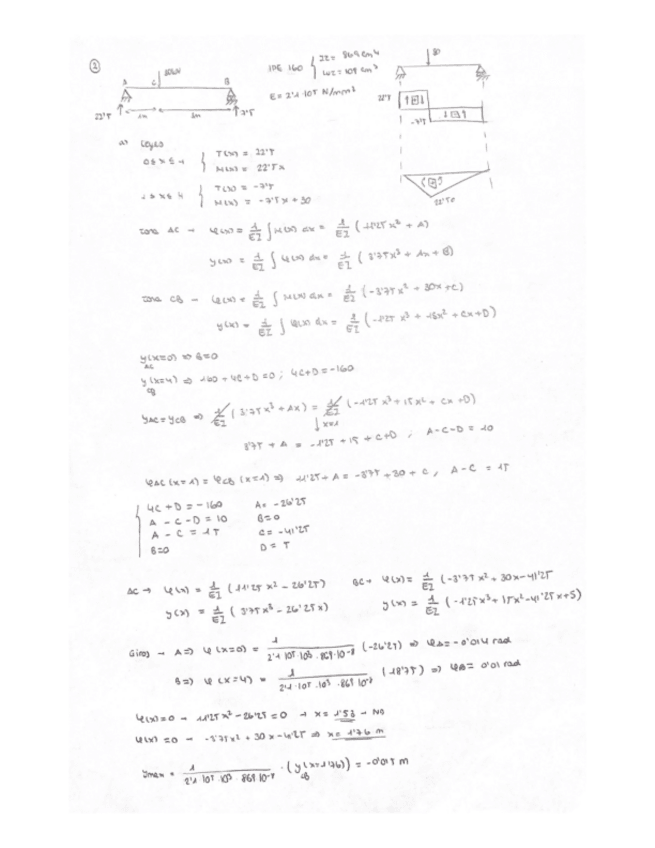 2
30kN
A C B
22'5 1m 3m 7'5
IPE 160 { I2 = 869 cm4
W2 = 109 cm3
E = 2'1·10⁵ N/mm²
30
22'5
-7'5
22'5
a) Leyes
0 ≤ x ≤ 1 { T(x) = 22'5
M(x) = 22'5x
1 ≤ x ≤ 4 { T(x) = -7'5
M(x) = -7'5x + 30
zona AC → φ(x) = 1/EI ∫ M(x) dx = 1/EI (11'25x² + A)
y(x) = 1/EI ∫ φ(x) dx = 1/EI (3'75x³ + Ax + B)
zona CB → φ(x) = 1/EI ∫ M(x) dx = 1/EI (-3'75x² + 30x + C)
y(x) = 1/EI ∫ φ(x) dx = 1/EI (-1'25x³ + 15x² + Cx + D)
yAC(x=0) ⇒ B=0
yCB(x=4) ⇒ 160 + 4C + D = 0 ; 4C+D = -160
yAC = yCB ⇒ 1/EI (3'75x³ + Ax) = 1/EI (-1'25x³ + 15x² + Cx + D)
↓ x=1
3'75 + A = -1'25 + 15 + C + D ; A-C-D = 10
φAC(x=1) = φCB(x=1) ⇒ 11'25 + A = -3'75 + 30 + C , A-C = 15
{ 4C + D = -160 A = -26'25
A - C - D = 10 B = 0
A - C = 15 C = -41'25
B = 0 D = 5
AC → φ(x) = 1/EI (11'25x² - 26'25) BC → φ(x) = 1/EI (-3'75x² + 30x - 41'25
y(x) = 1/EI (3'75x³ - 26'25x) y(x) = 1/EI (-1'25x³ + 15x² - 41'25x + 5)
Giros → A ⇒ φ(x=0) = 1/2'1·10⁵·10³·869·10⁻⁸ (-26'25) ⇒ φA = -0'014 rad
B ⇒ φ(x=4) = 1/2'1·10⁵·10³·869·10⁻⁸ (18'75) ⇒ φB = 0'01 rad
φ(x) = 0 → 11'25x² - 26'25 = 0 → x = 1'53 → NO
φ(x) = 0 → -3'75x² + 30x - 41'25 ⇒ x = 1'76 m
ymax = 1/2'1·10⁵·10³·869·10⁻⁸ · (yCB(x=1'76)) = -0'015 m